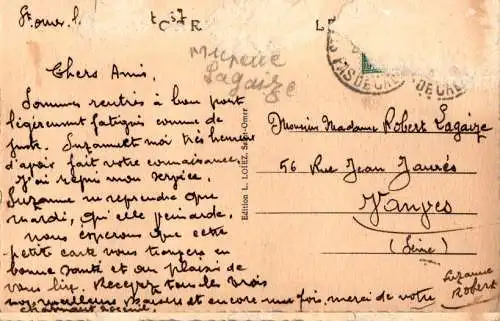 St Omer l
37
C R
L
Mireille
Lagaize
PAS DE CALAIS
Chers Amis,
Sommes rentrés à bon port
légèrement fatigués comme de
juste. Suzanne et moi très heureux
d'avoir fait votre connaissance,
J'ai repris mon service.
Suzanne ne reprendre que
mardi, qu'elle peinarde.
nous espérons que cette
petite carte vous trouvera en
bonne santé et au plaisir de
vous lire. Recevez tous les trois
nos meilleurs baisers et encore une fois, merci de votre
charmant accueil.
Suzanne
Robert
Edition L. LOIEZ, Saint-Omer
Monsieur Madame Robert Lagaize
56 Rue Jean Jaurés
Vanves
(Seine)